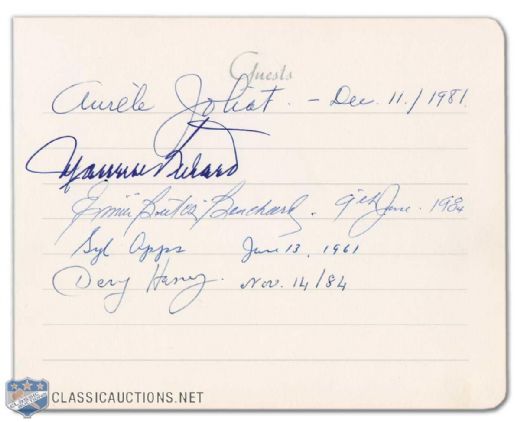 Guests
Aurèle Joliat. - Dec. 11./1981.
Maurice Richard
Emile "Butch" Bouchard. 9th June. 1984
Syl Apps June 13, 1961
Doug Harvey. Nov. 14/84
CLASSICAUCTIONS.NET